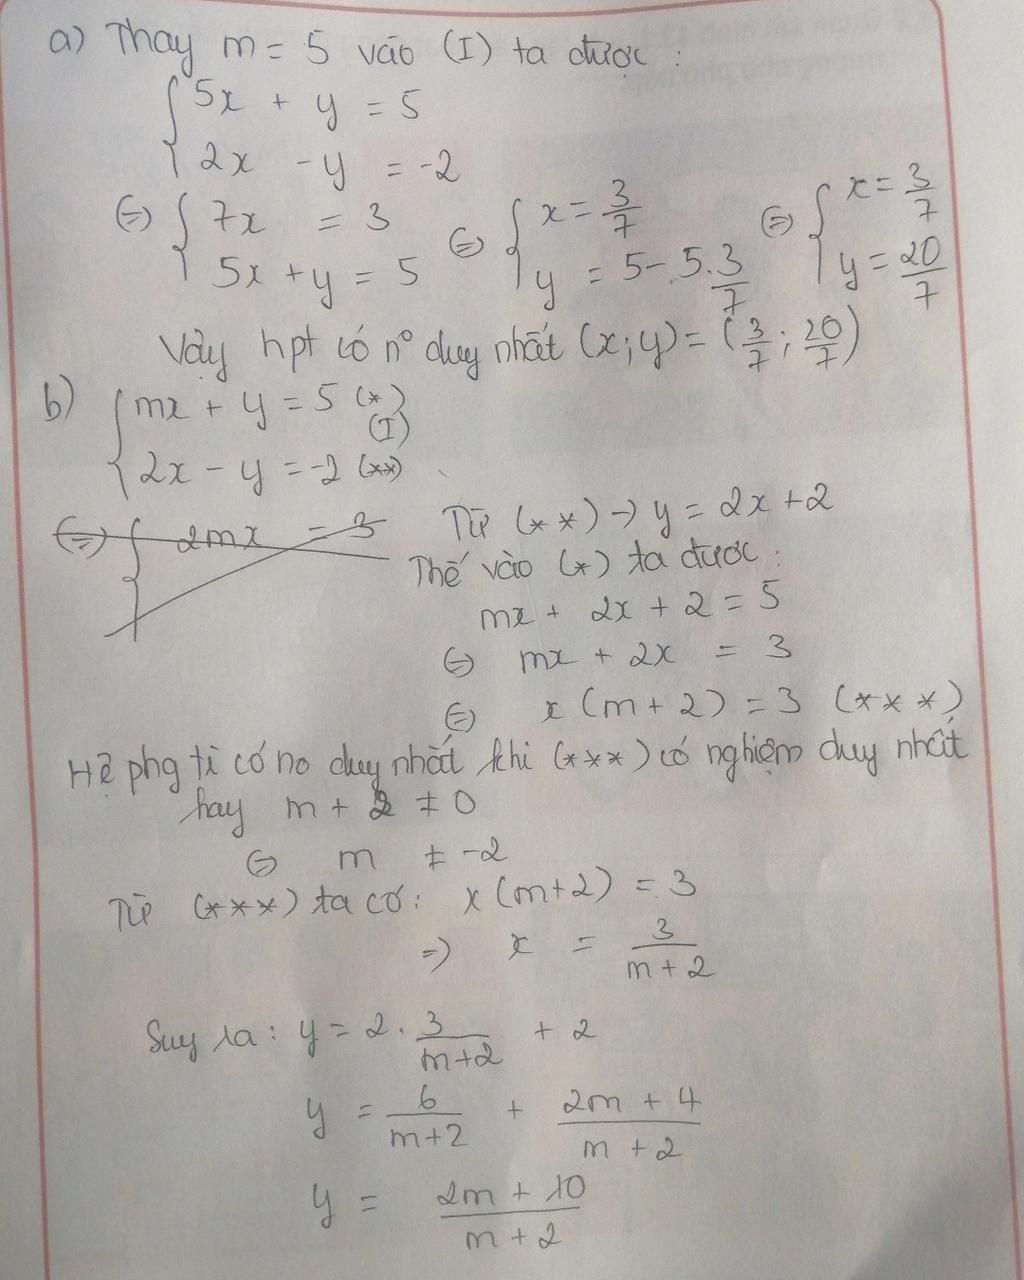 a) Thay m = 5 vào (I) ta được :
{ 5x + y = 5
2x - y = -2
⇔ { 7x = 3
5x + y = 5 ⇔ { x = 3/7
y = 5 - 5.3/7 ⇔ { x = 3/7
y = 20/7
Vậy hpt có nº duy nhất (x;y) = (3/7 ; 20/7)
b) { mx + y = 5 (*)
(I)
2x - y = -2 (**)
⇔ { 2mx = 3
Từ (**) → y = 2x + 2
Thế vào (*) ta được :
mx + 2x + 2 = 5
⇔ mx + 2x = 3
⇔ x (m + 2) = 3 (***)
Hệ phg tì có no duy nhất khi (***) có nghiệm duy nhất
hay m + 2 ≠ 0
⇔ m ≠ -2
Từ (***) ta có: x (m+2) = 3
⇒ x = 3/(m + 2)
Suy ra : y = 2 . 3/(m+2) + 2
y = 6/(m+2) + (2m + 4)/(m + 2)
y = (2m + 10)/(m + 2)